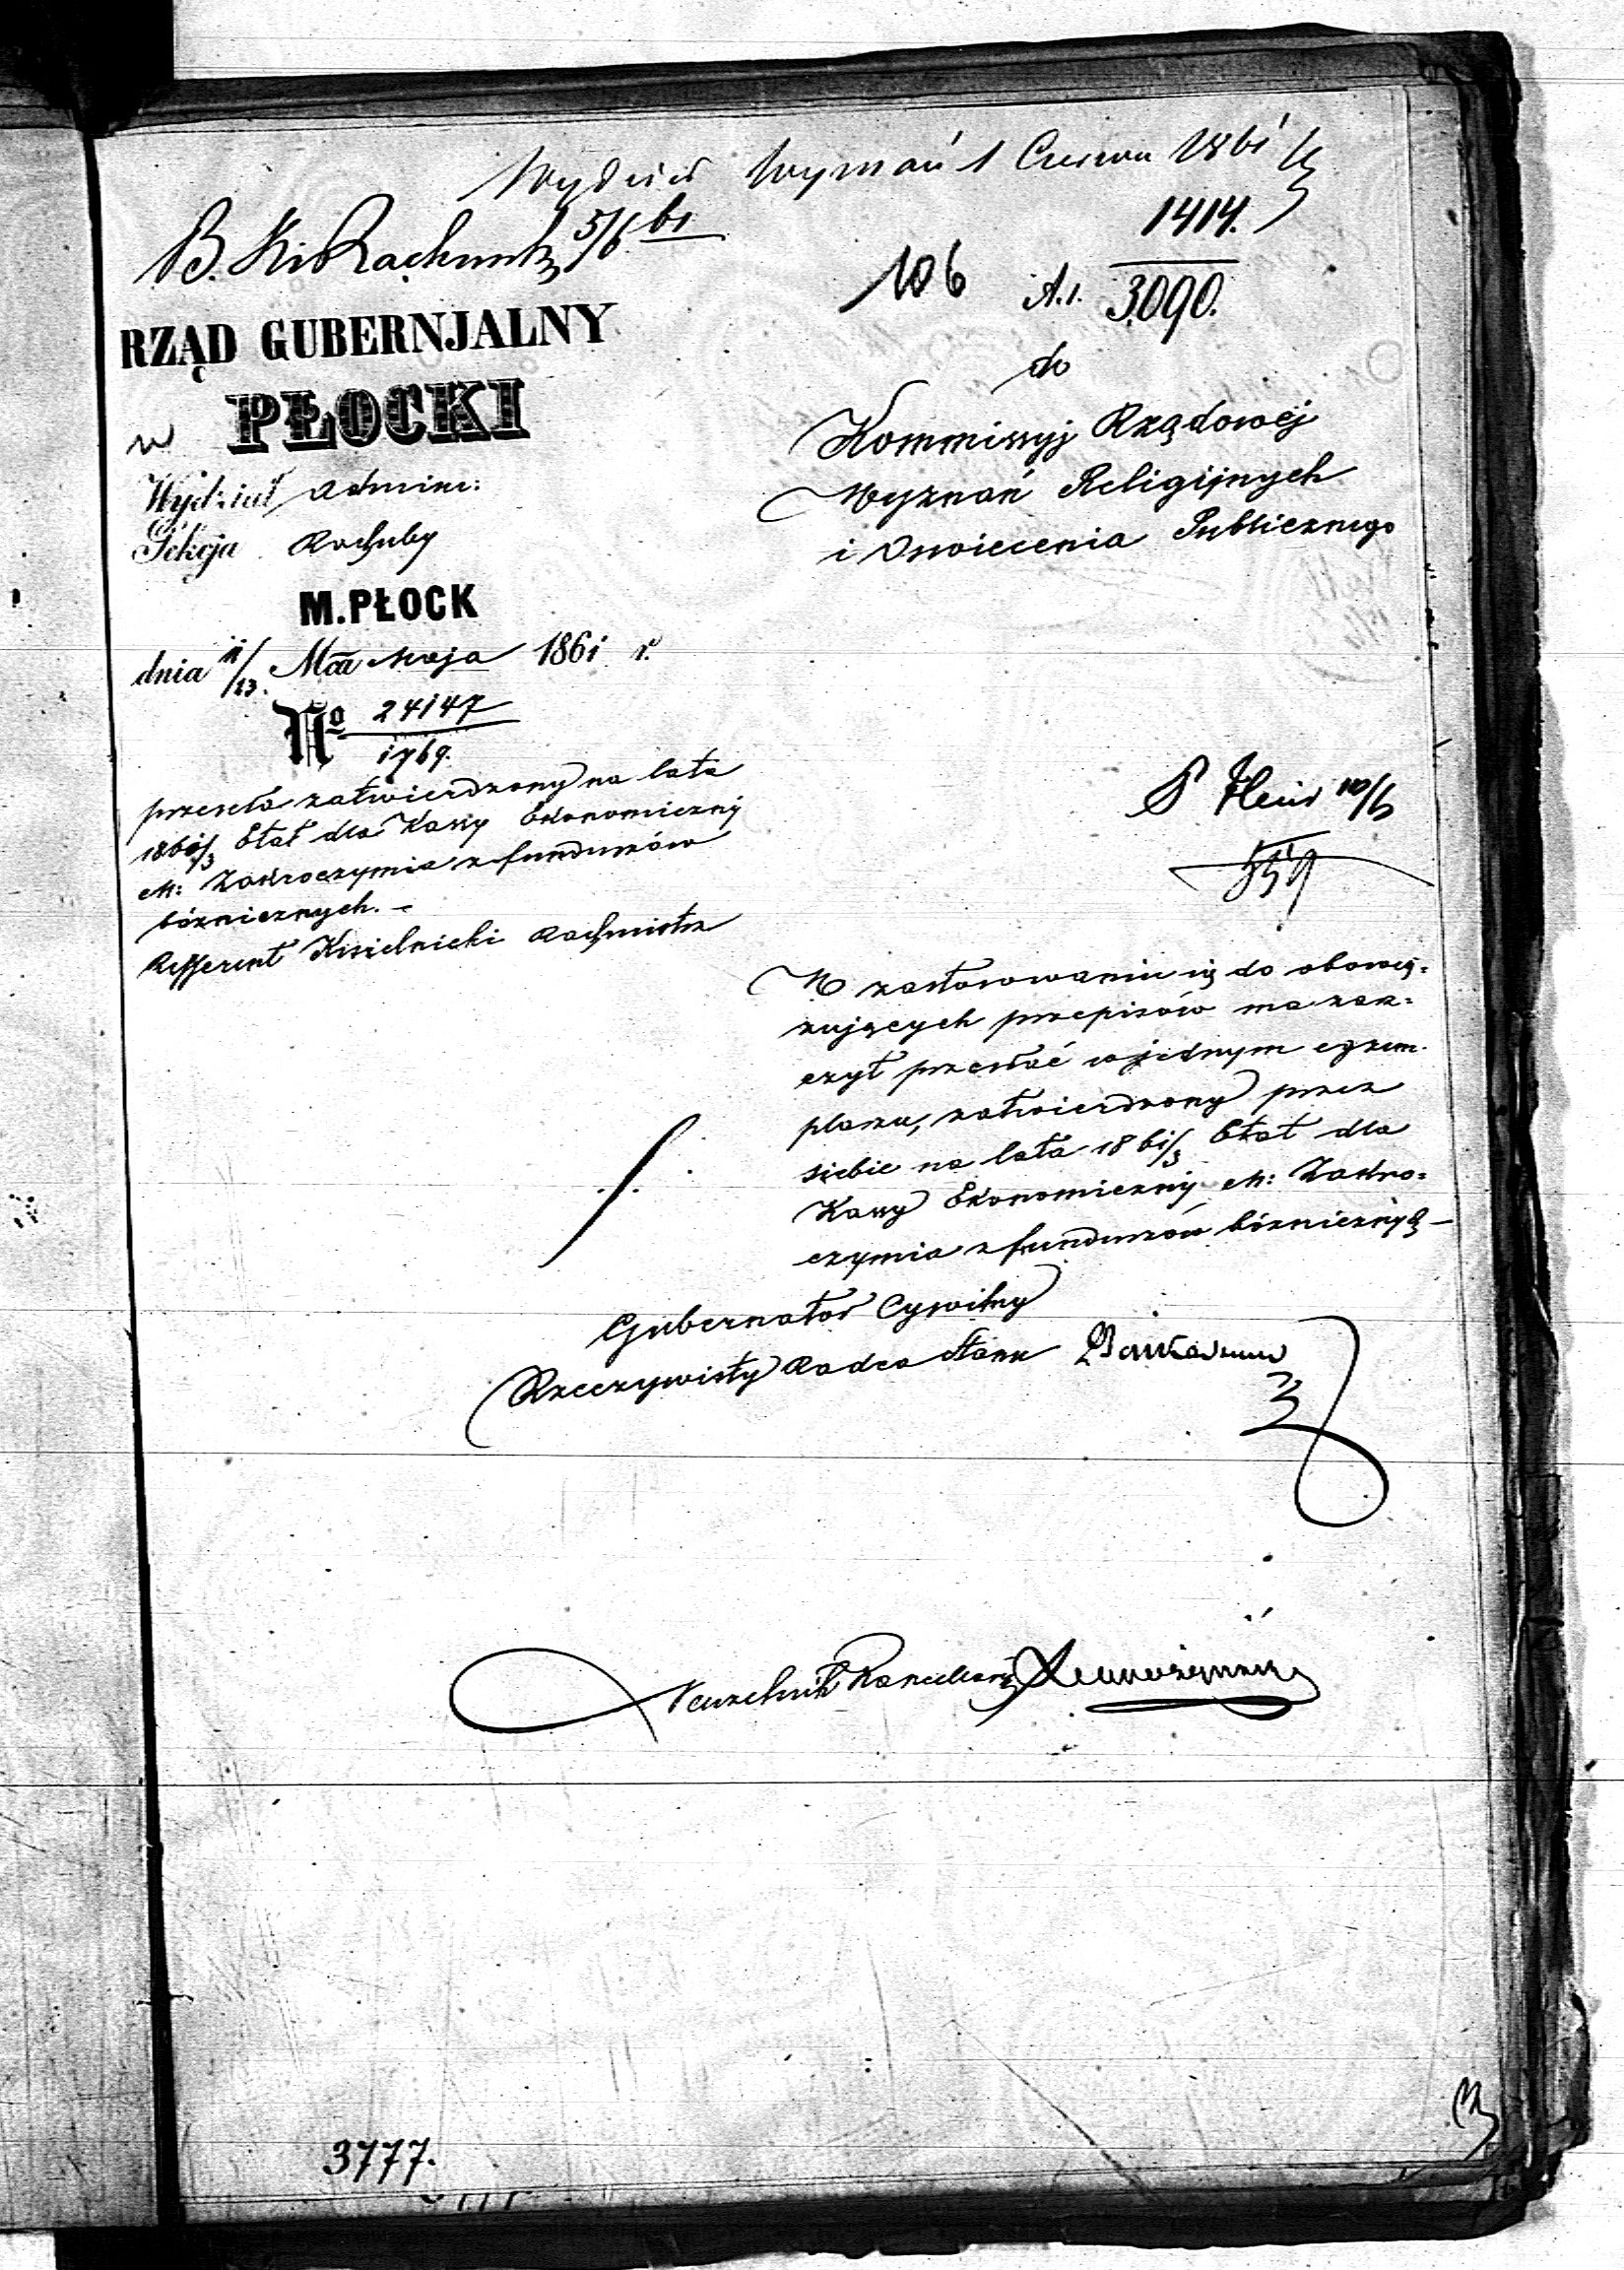 Wydział Wyznań 1 Czerwca 1861
B. Kr Rachunk 5/6 61
1414.
106 A.1. 3090.
RZĄD GUBERNJALNY
w PŁOCKI
Wydział Admini:
Sekcja Rachuby
M. PŁOCK
dnia 11/23. Maja 1861 r.
No 24147
1769.
przesyła zatwierdzony na lata
1861/3 Etat dla Kassy Ekonomicznij
M: Zakroczymia z funduszów
bóżnicznych. -
Refferent Kisielnicki Rachmistrz
do
Kommissyj Rządowej
Wyznań Religijnych
i Oswiecenia Publicznego
10/6
W zastosowaniu się do obowią=
zujących przepisów ma zasz=
czyt przesłać w jednym egzem-
plarzu, zatwierdzony przez
siebie na lata 1861/3 Etat dla
Kassy Ekonomicznij M: Zakro=
czymia z funduszów bóżnicznych -
Gubernator Cywilny
Rzeczywisty Radca Stanu
Naczelnik Kancellarji
3777.